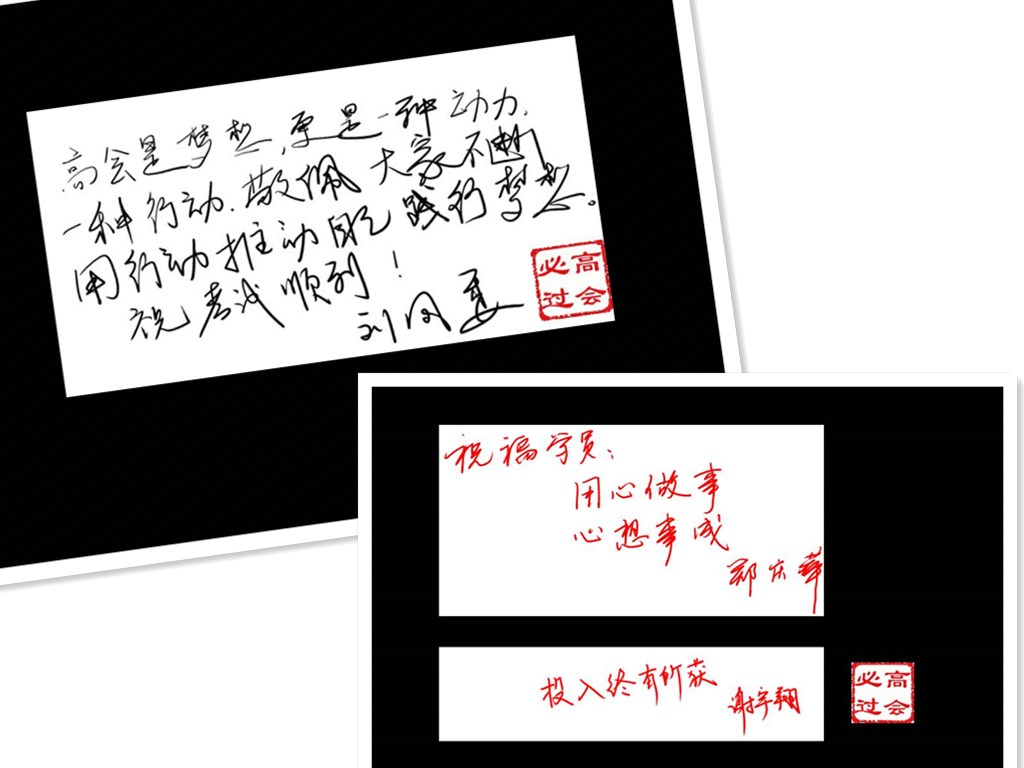 高会是梦想,更是一种动力,
一种行动.敬佩大家不断
用行动推动自己践行梦想。
祝考试顺利!
刘国
高会
必过
祝福学员:
用心做事
心想事成
郑庆华
投入终有所获
谢宇翔
高会
必过